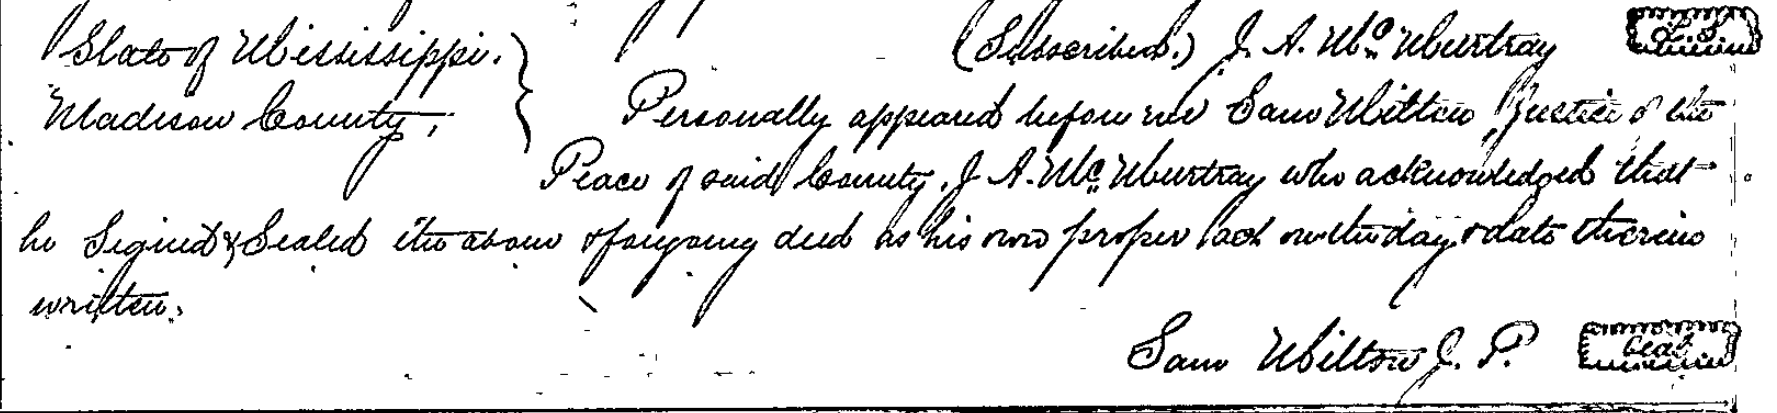 State of Mississippi. } (Subscribed.) J. A. McMurtray L.S.
Madison County, } Personally appeared before me Sam Milton Justice of the
Peace of said County, J. A. McMurtray who acknowledged that
he Signed & Sealed the above & foregoing deed as his own proper act on the day & date therein
written.
Sam Milton J. P. Seal